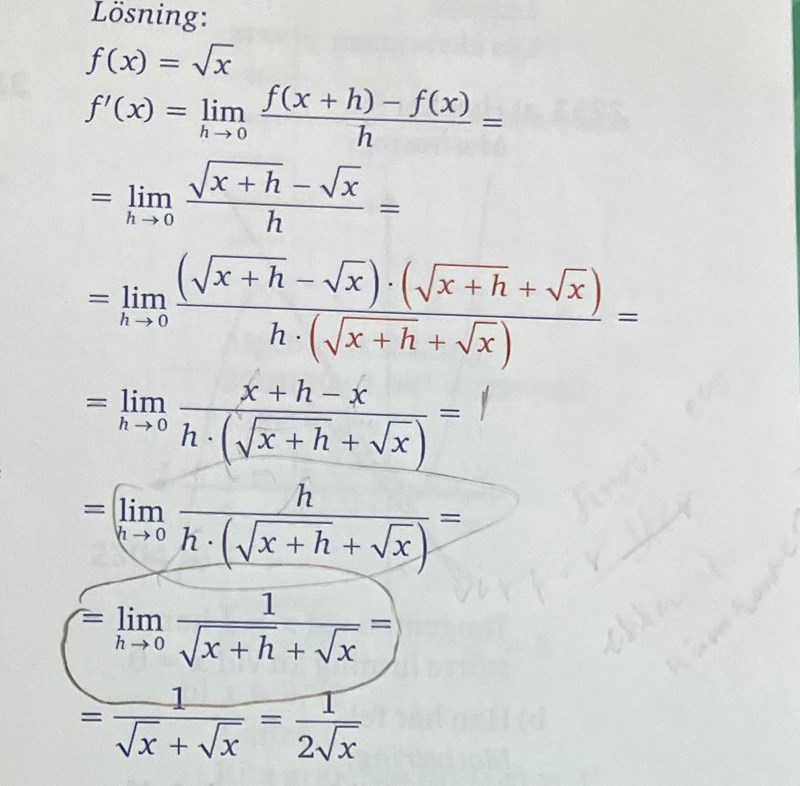 Lösning:
f(x) = √x
f'(x) = lim h→0 (f(x + h) − f(x))/h =
= lim h→0 (√(x + h) − √x)/h =
= lim h→0 ((√(x + h) − √x) · (√(x + h) + √x))/(h · (√(x + h) + √x)) =
= lim h→0 (x + h − x)/(h · (√(x + h) + √x)) =
= lim h→0 h/(h · (√(x + h) + √x)) =
= lim h→0 1/(√(x + h) + √x) =
= 1/(√x + √x) = 1/(2√x)